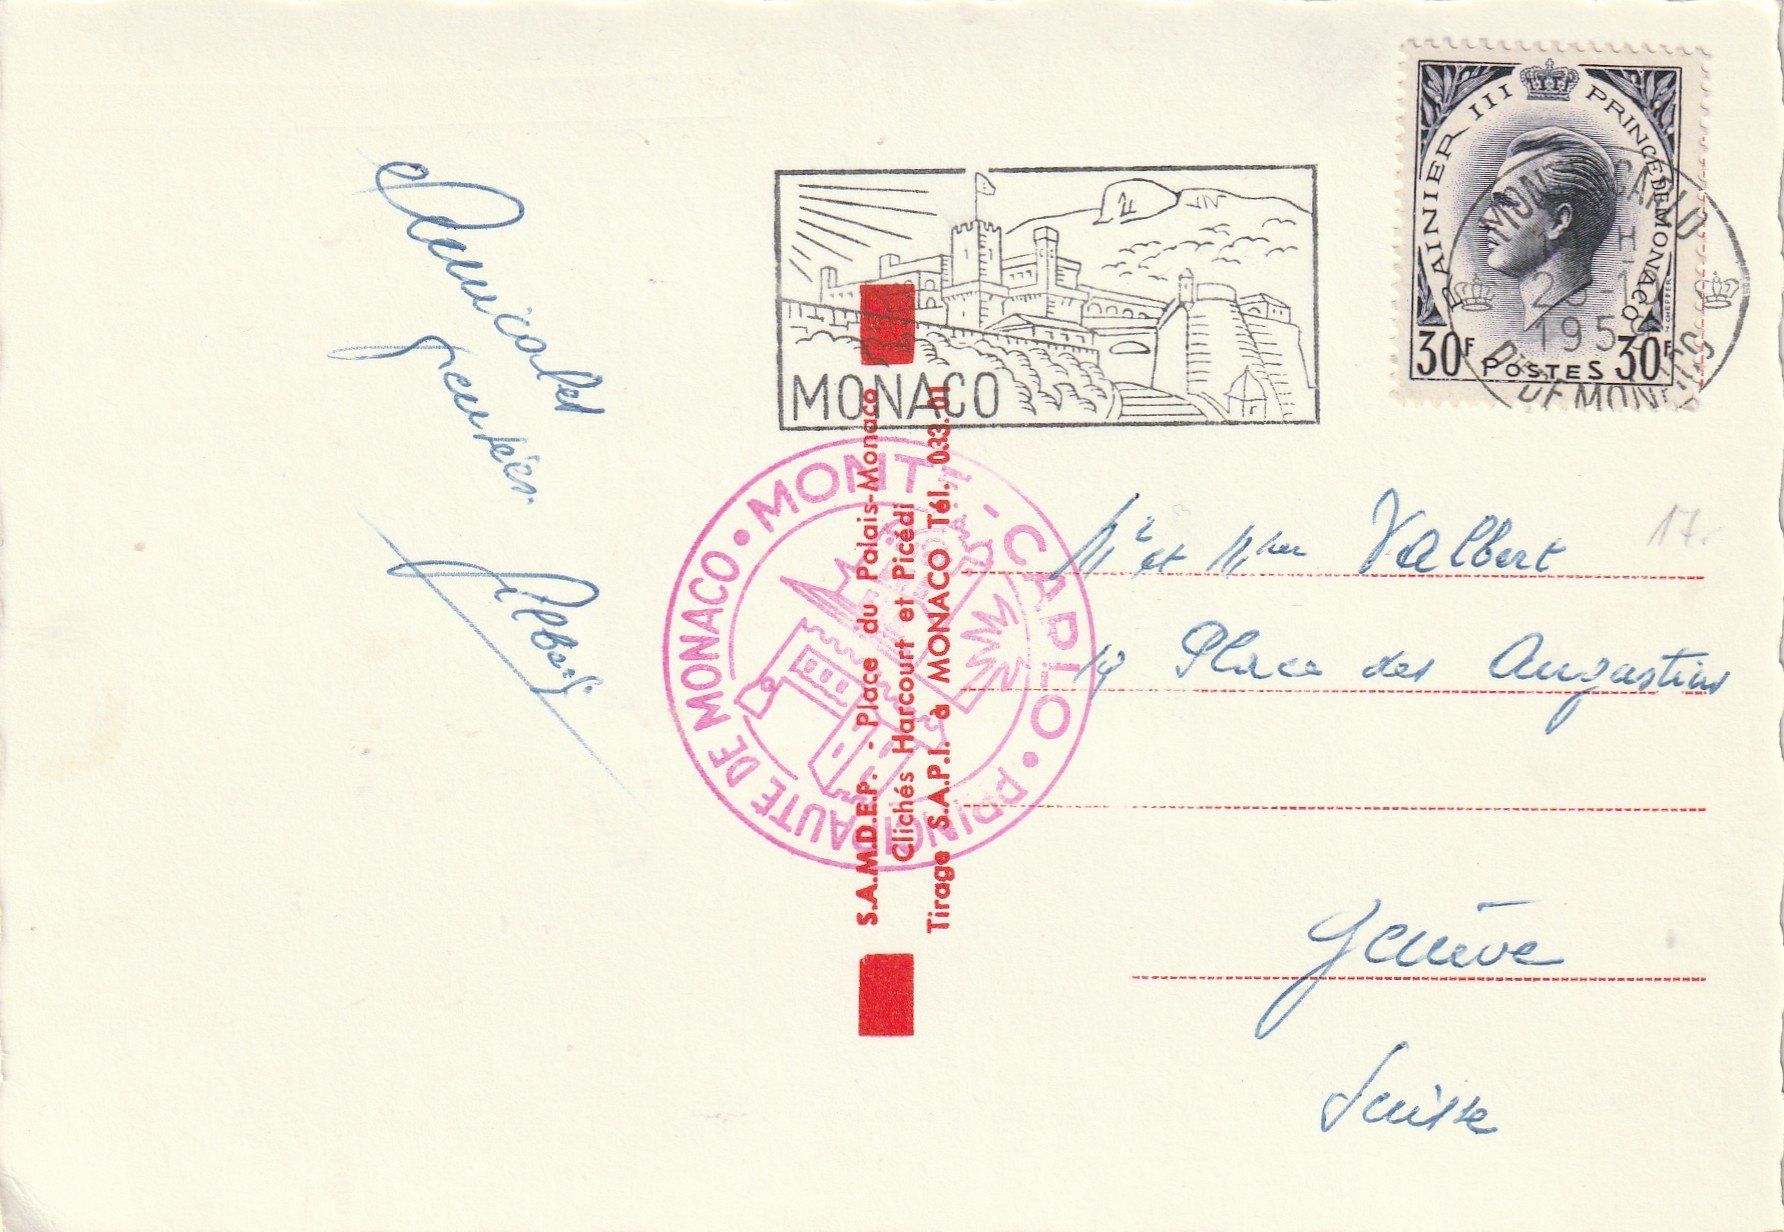 Amicales
pensées
Albert
MONACO
RAINIER III PRINCE DE MONACO
30F POSTES 30F
MONTE-CARLO
195
PTÉ DE MONACO
• MONTE-CARLO • PRINCIPAUTÉ DE MONACO
S.A.M.D.E.P. - Place du Palais-Monaco
Clichés Harcourt et Picédi
Tirage S.A.P.I. à MONACO Tél. 033.01
Mr et Mme Valbert
19 Place des Augustins
Genève
Suisse
17.